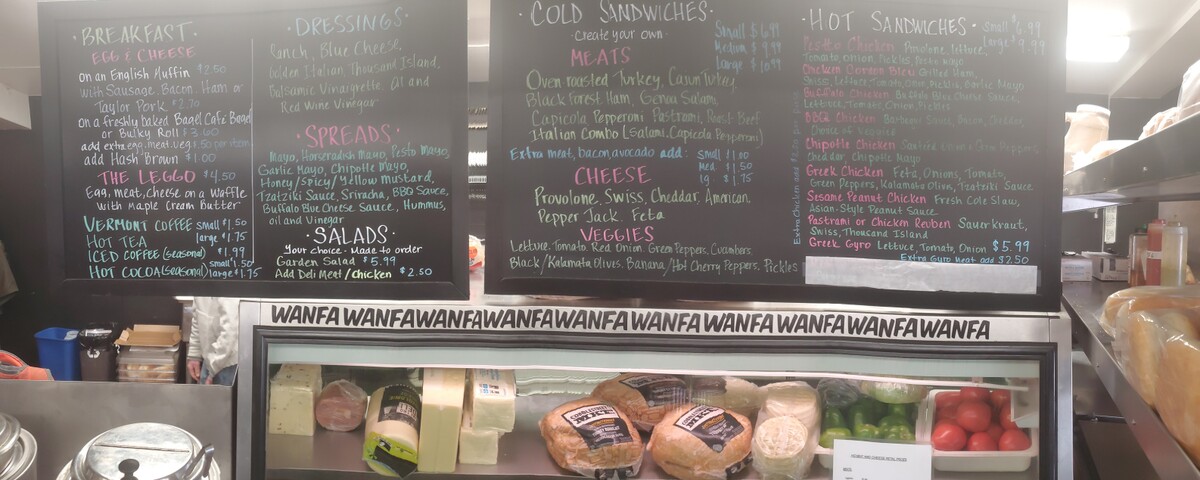 BREAKFAST
EGG & CHEESE
on an English Muffin $2.50
with Sausage, Bacon, Ham or
Taylor Pork $2.70
on a freshly baked Bagel, Cafe Bagel
or Bulky Roll $3.60
add extra egg, meat, veg $.50 per item
add Hash Brown $1.00
THE LEGGO $4.50
Egg, meat, cheese on a Waffle
with Maple Cream Butter
VERMONT COFFEE small $1.50
HOT TEA large $1.75
ICED COFFEE (seasonal) $1.99
HOT COCOA (seasonal) small $1.50 large $1.75
DRESSINGS
Ranch, Blue Cheese,
Golden Italian, Thousand Island,
Balsamic Vinaigrette, Oil and
Red Wine Vinegar
SPREADS
Mayo, Horseradish Mayo, Pesto Mayo,
Garlic Mayo, Chipotle Mayo,
Honey/Spicy/Yellow Mustard,
Tzatziki Sauce, Sriracha, BBQ Sauce,
Buffalo Blue Cheese Sauce, Hummus,
oil and Vinegar
SALADS
Your choice - Made to order
Garden Salad $5.99
Add Deli Meat/chicken $2.50
COLD SANDWICHES
create your own
Small $6.99
Medium $9.99
Large $10.99
MEATS
Oven roasted Turkey, Cajun Turkey,
Black Forest Ham, Genoa Salami,
Capicola, Pepperoni, Pastrami, Roast Beef
Italian Combo (Salami, Capicola, Pepperoni)
Extra meat, bacon, avocado add: Small $1.00
Med $1.50
lg $1.75
CHEESE
Provolone, Swiss, Cheddar, American,
Pepper Jack, Feta
VEGGIES
Lettuce, Tomato, Red Onion, Green Peppers, Cucumbers,
Black/Kalamata Olives, Banana/Hot Cherry Peppers, Pickles
HOT SANDWICHES small $6.99
large $9.99
Pesto Chicken Provolone, lettuce,
Tomato, Onion, Pickles, Pesto Mayo
Chicken Cordon Bleu Grilled Ham,
Swiss, Lettuce, Tomato, Onion, Pickles, Garlic Mayo
Buffalo Chicken Buffalo Blue Cheese Sauce,
Lettuce, Tomato, Onion, Pickles
BBQ Chicken Barbeque Sauce, Bacon, Cheddar,
Choice of Veggies
Chipotle Chicken Sauteed Onions, Green Peppers,
Cheddar, Chipotle Mayo
Greek Chicken Feta, Onions, Tomato,
Green Peppers, Kalamata Olive, Tzatziki Sauce
Sesame Peanut Chicken Fresh Cole Slaw,
Asian-Style Peanut Sauce
Pastrami or Chicken Reuben Sauerkraut,
Swiss, Thousand Island
Greek Gyro Lettuce, Tomato, Onion $5.99
Extra Gyro Meat add $2.50
WANFA WANFA WANFA WANFA WANFA WANFA WANFA WANFA WANFA WANFA